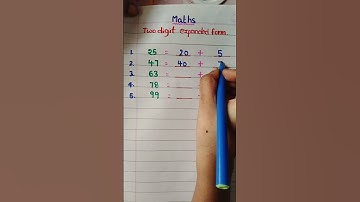 Maths
Two digit expanded form
1. 25 = 20 + 5
2. 47 = 40 +
3. 63 = __ +
4. 78 = __
5. 99 = __